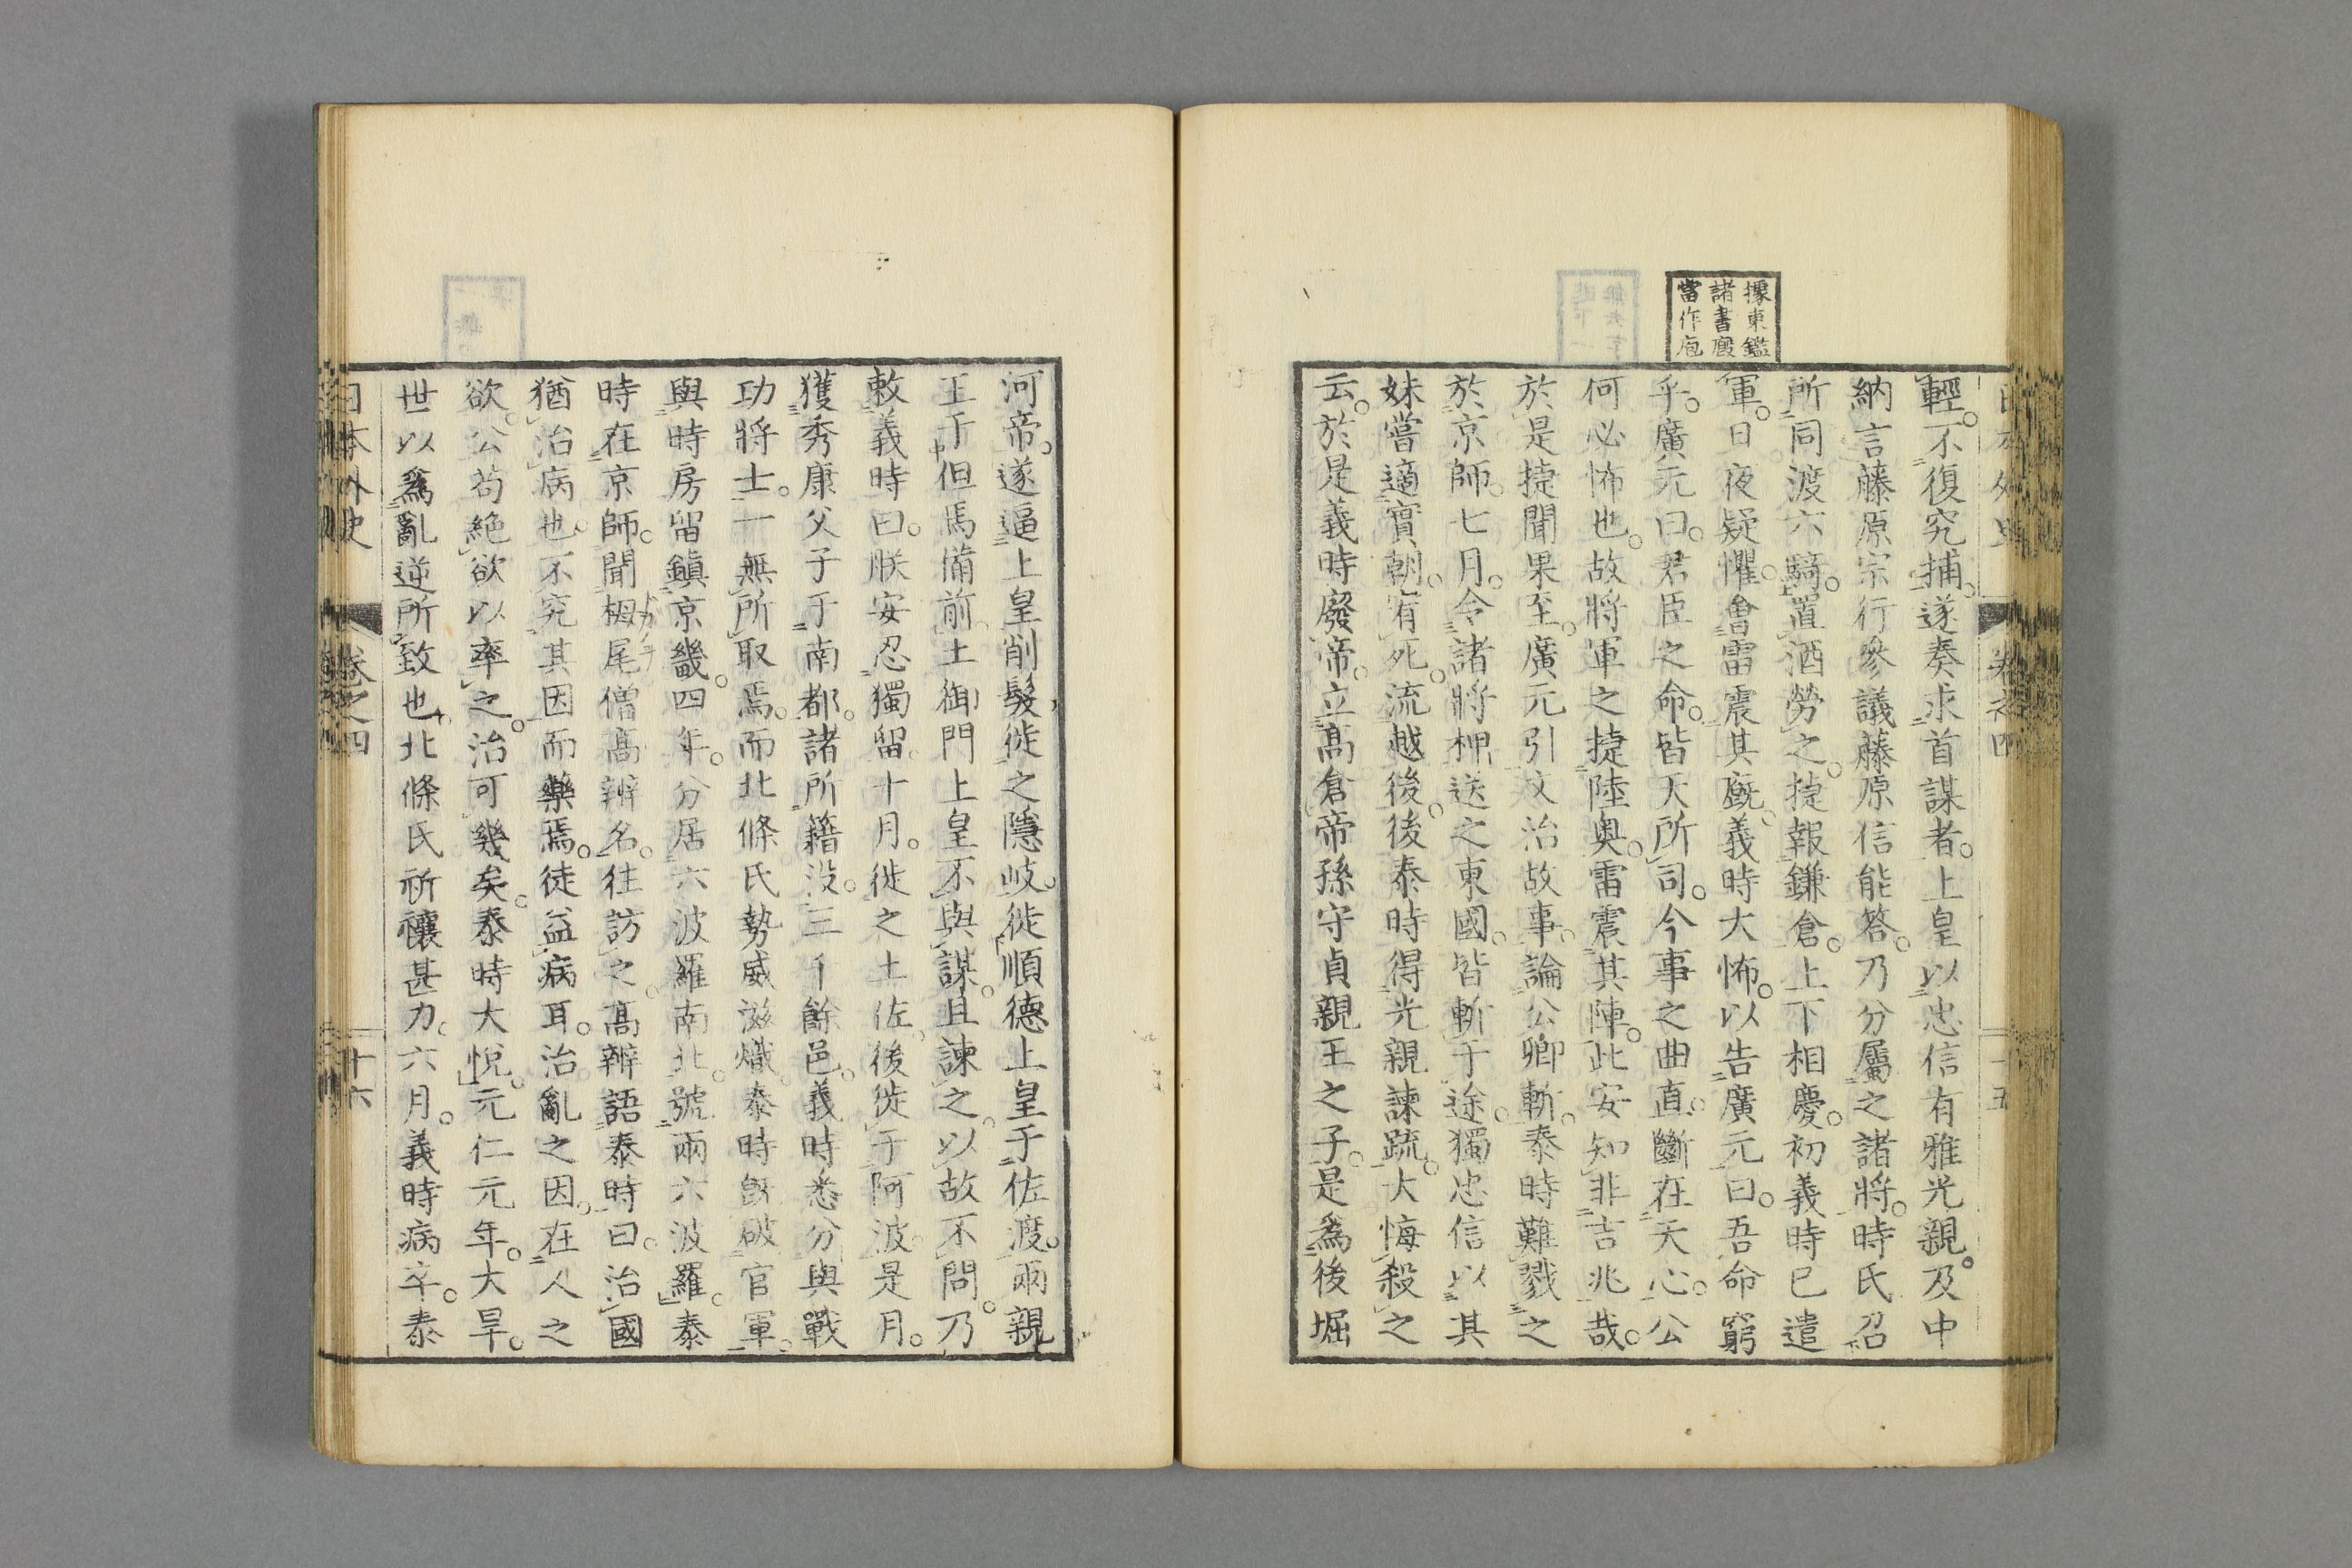 據東鑑
諸書廄
當作庖
輕。不復究捕。遂奏求首謀者。上皇以忠信有雅光親。及中
納言藤原宗行參議藤原信能答。乃分屬之諸將。時氏召
所同渡六騎。置酒勞之。捷報鎌倉。上下相慶。初義時已遣
軍。日夜疑懼。會雷震其廐。義時大怖。以告廣元曰。吾命窮
乎。廣元曰。君臣之命。皆天所司。今事之曲直。斷在天心。公
何必怖也。故將軍之捷陸奥。雷震其陣。此安知非吉兆哉。
於是捷聞果至。廣元引文治故事。論公卿斬。泰時難戮之
於京師。七月。令諸將押送之東國。皆斬于途。獨忠信以其
妹嘗適實朝。宥死。流越後。後泰時得光親諫疏。大悔殺之
云。於是義時廢帝。立高倉帝孫守貞親王之子。是爲後堀
河帝。遂逼上皇削髮徙之隱岐。徙順德上皇于佐渡。兩親
王于但馬備前。土御門上皇不與謀。且諫之。以故不問。乃
敕義時曰。朕安忍獨留。十月。徙之土佐。後徙于阿波。是月。
獲秀康父子于南都。諸所籍沒。三千餘邑。義時悉分與戰
功將士。一無所取焉。而北條氏勢威滋熾。泰時既破官軍。
與時房留鎭京畿。四年。分居六波羅南北。號兩六波羅。泰
時在京師。聞栂尾僧高辨名。往訪之。高辨語泰時曰。治國
猶治病也。不究其因而藥焉。徒益病耳。治亂之因。在人之
欲。公苟絶欲以率之。治可幾矣。泰時大悅。元仁元年。大旱。
世以爲亂逆所致也。北條氏祈禳甚力。六月。義時病卒。泰
日本外史 卷之四 十六